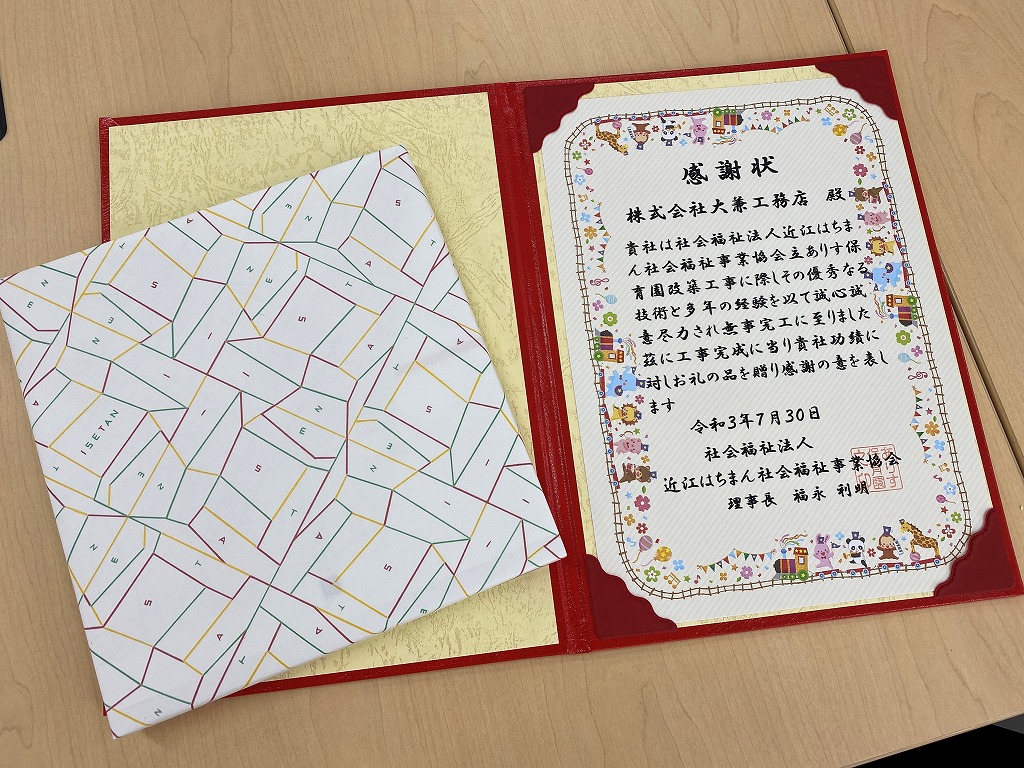 感謝状
株式会社大兼工務店 殿
貴社は社会福祉法人近江はちま
ん社会福祉事業協会立ありす保
育園改築工事に際しその優秀なる
技術と多年の経験を以て誠心誠
意尽力され無事完工に至りました
茲に工事完成に当り貴社功績に
対しお礼の品を贈り感謝の意を表し
ます
令和3年7月30日
社会福祉法人
近江はちまん社会福祉事業協会
理事長 福永 利明
ISETAN